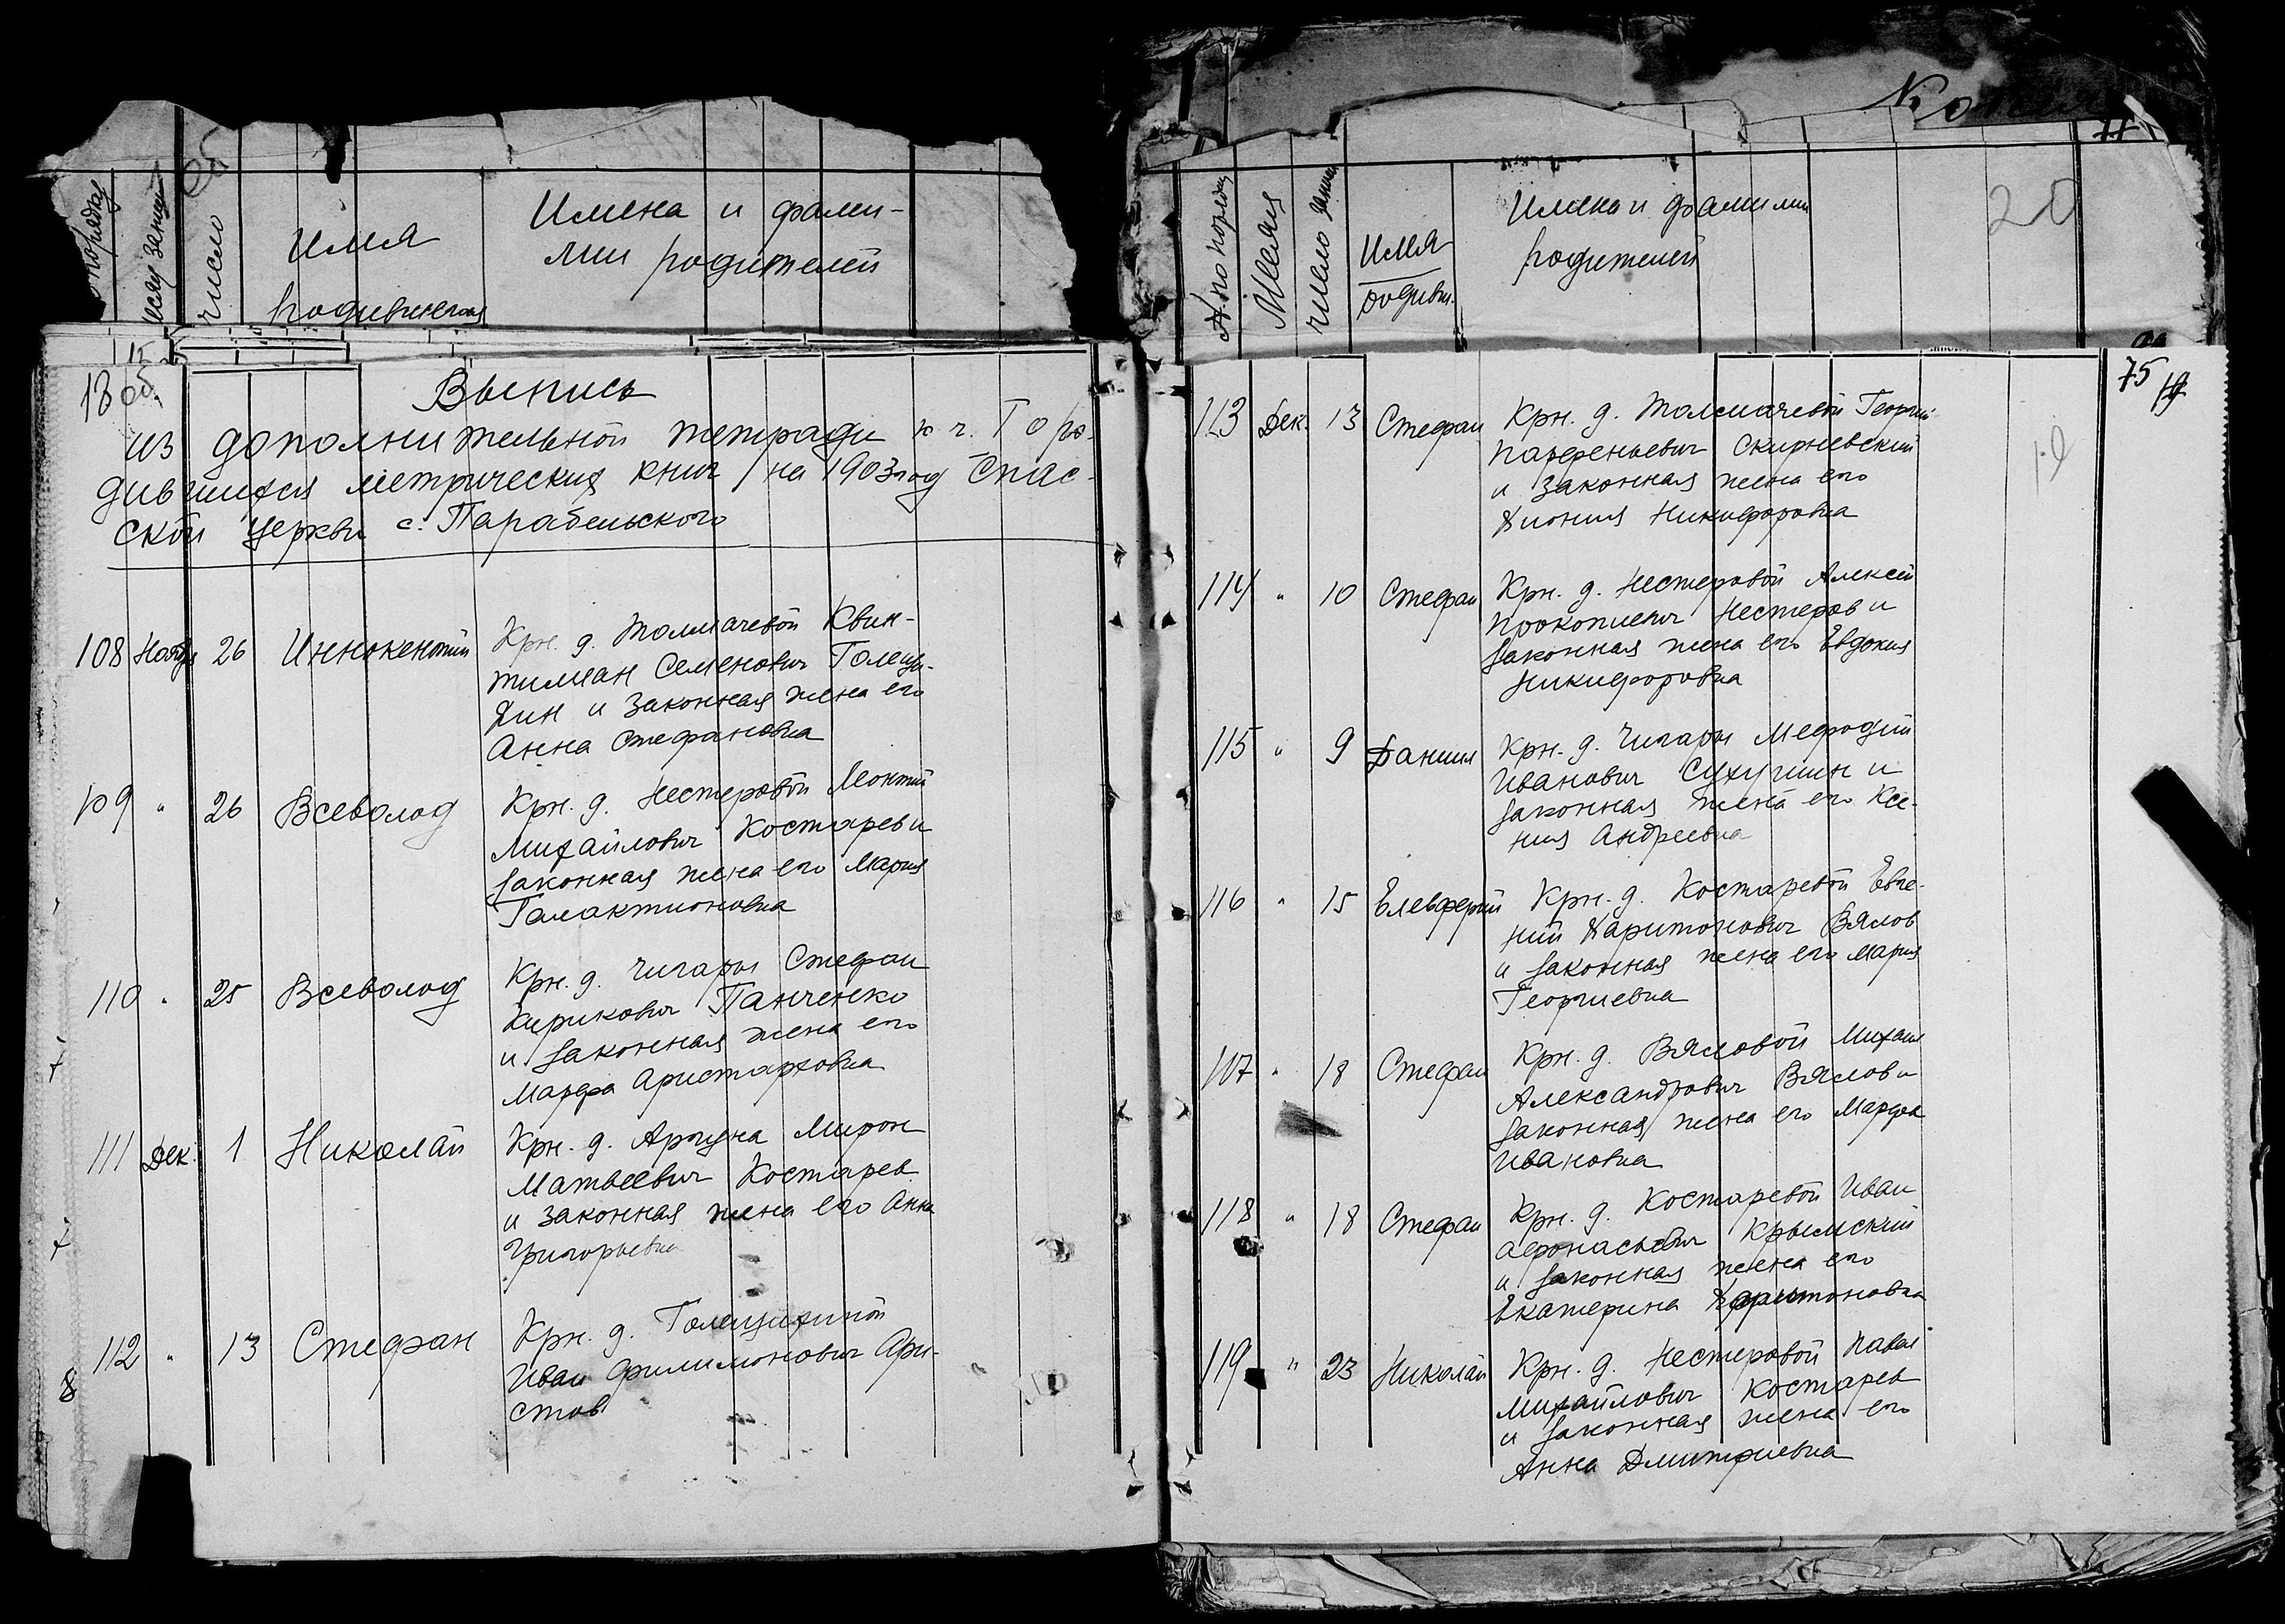 Имя
родившегося
Имена и фами-
лии родителей
число
18 об.
Выпись
из дополнительной тетради к ч. I о ро-
дившихся метрических книг на 1903 год Спас-
ской церкви с. Парабельского
108 Ноябр 26 Иннокентий Крн. д. Толмачевой Квин-
тилиан Семенович Голещи-
хин и законная жена его
Анна Стефановна
109 " 26 Всеволод Крн. д. Нестеровой Леонтий
Михайлович Костарев и
законная жена его Мария
Галактионовна
110 " 25 Всеволод Крн. д. Чигары Стефан
Кирикович Панченко
и законная жена его
Марфа Аристарховна
111 Дек. 1 Николай Крн. д. Аргуна Мирон
Матвеевич Костарев
и законная жена его Анна
Григорьевна
112 " 13 Стефан Крн. д. Голещихиной
Иван Филимонович Ари-
стов
8
№ по порядку
Месяц
число
Имя
родивш.
Имена и фамилии
родителей
20
75
19
113 Дек. 13 Стефан Крн. д. Толмачевой Георгий
Парфеньевич Скирневский
и законная жена его
Хиония Никифоровна
114 " 10 Стефан Крн. д. Нестеровой Алексей
Прокопиевич Нестеров и
законная жена его Евдокия
Никифоровна
115 " 9 Даниил Крн. д. Чигары Мефодий
Иванович Сухушин и
законная жена его Ксе-
ния Андреевна
116 " 15 Елевферий Крн. д. Костаревой Евге-
ний Харитонович Вялов
и законная жена его Мария
Георгиевна
107 " 18 Стефан Крн. д. Вяловой Михаил
Александрович Вялов и
законная жена его Марфа
Ивановна
118 " 18 Стефан Крн. д. Костаревой Иван
Афонасьевич Крымский
и законная жена его
Екатерина Харитоновна
119 " 23 Николай Крн. д. Нестеровой Павел
Михайлович Костарев
и законная жена его
Анна Дмитриевна